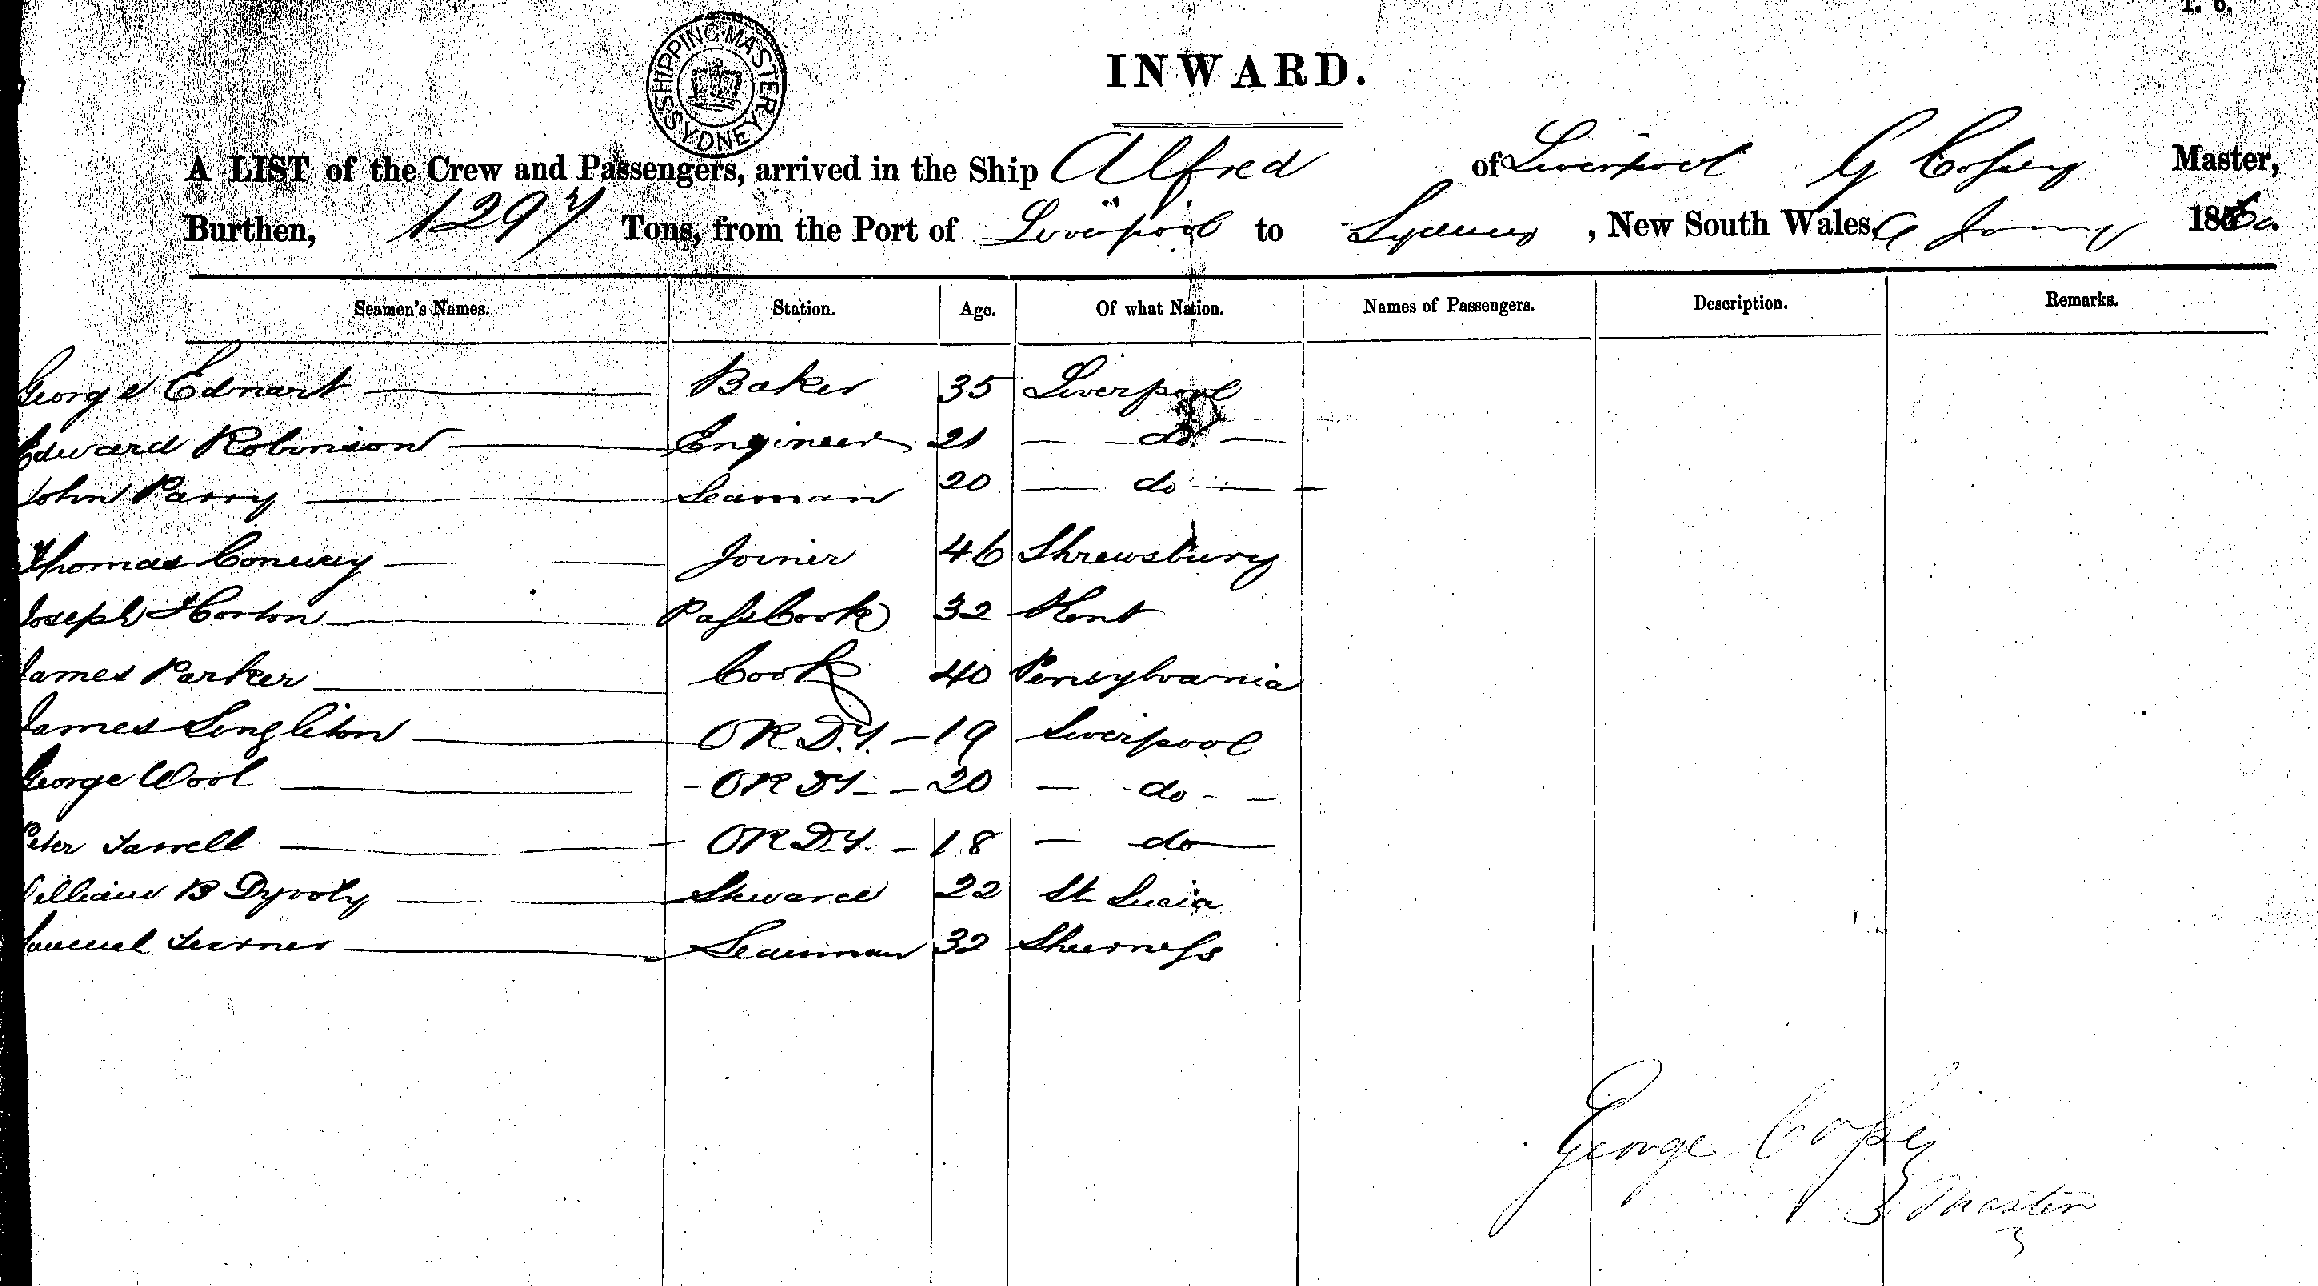 I. 6.
SHIPPING MASTER SYDNEY
INWARD.
A LIST of the Crew and Passengers, arrived in the Ship Alfred of Liverpool G Copey Master,
Burthen, 1297 Tons, from the Port of Liverpool to Sydney, New South Wales, 1860.
Seamen's Names. Station. Age. Of what Nation. Names of Passengers. Description. Remarks.
George Ednart Baker 35 Liverpool
Edward Robinson Engineer 21 — do —
John Parry Seaman 20 — do —
Thomas Conway Joiner 46 Shrewsbury
Joseph Horton Pass Cook 32 Kent
James Parker Cook 40 Pensylvania
James Singleton ORDY. — 19 Liverpool
George Wool - ORDY - 20 — do - —
Peter Farrell ORDY. - 18 — do —
William B Steward 22 St Lucia
Samuel Seaman 32 Sheerness
George Copey
Master